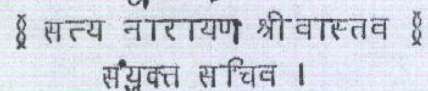 ( सत्य नारायण श्रीवास्तव )
संयुक्त सचिव ।